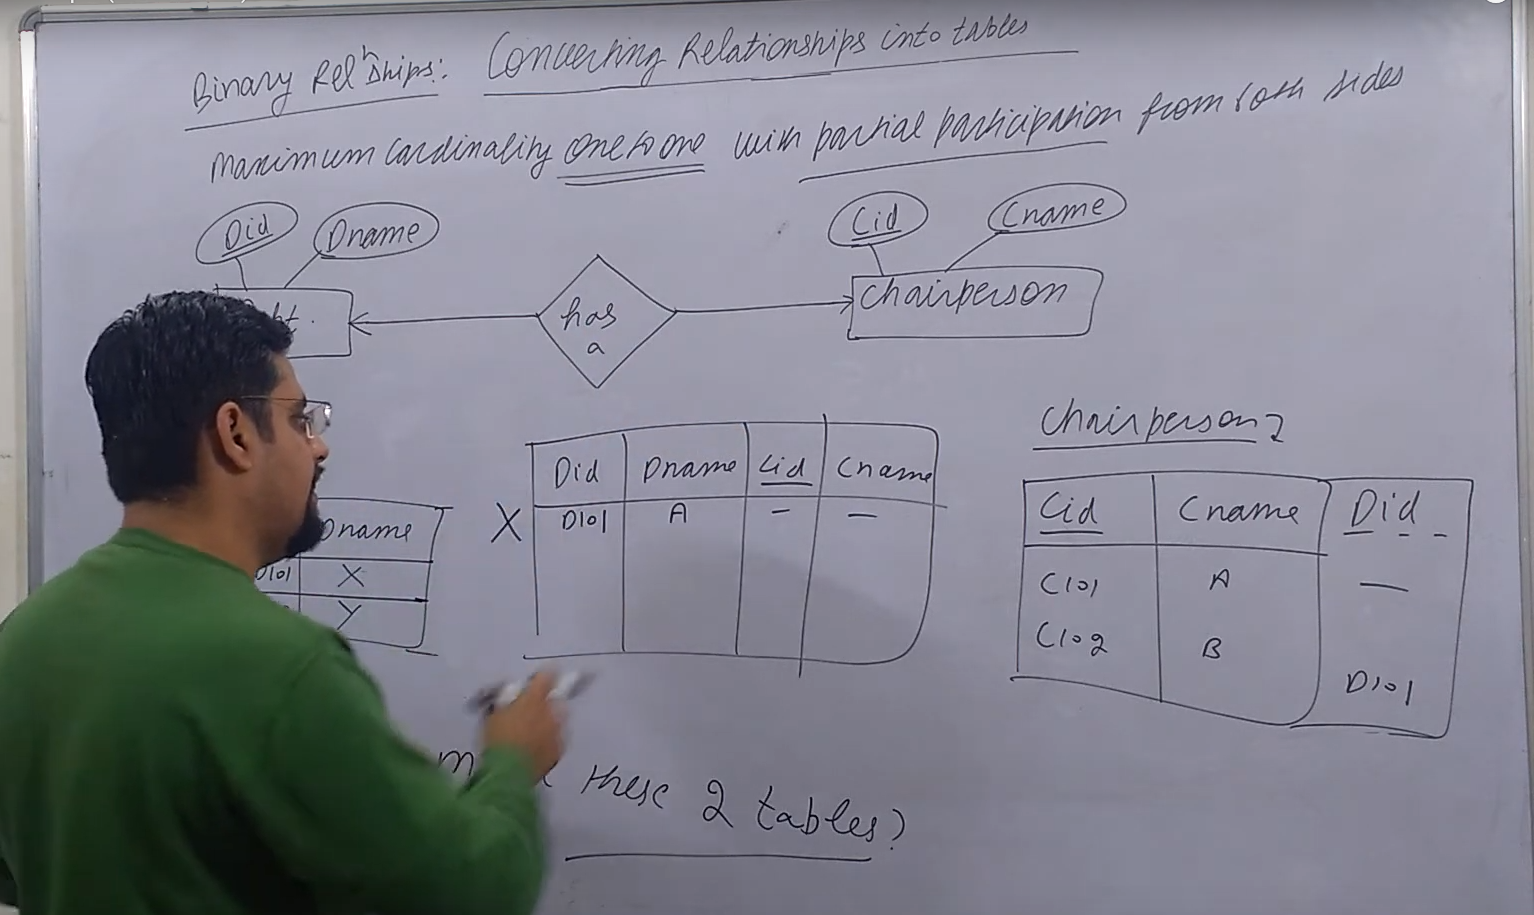 Binary Relnships: Converting Relationships into tables
Maximum Cardinality one to one with partial participation from both sides
Did Dname Cid Cname
has a
Chairperson
Chairperson
Did Dname Cid Cname
D101 A - -
X
Dname
D101 X
Y
Cid Cname Did
C101 A -
C102 B
D101
these 2 tables?